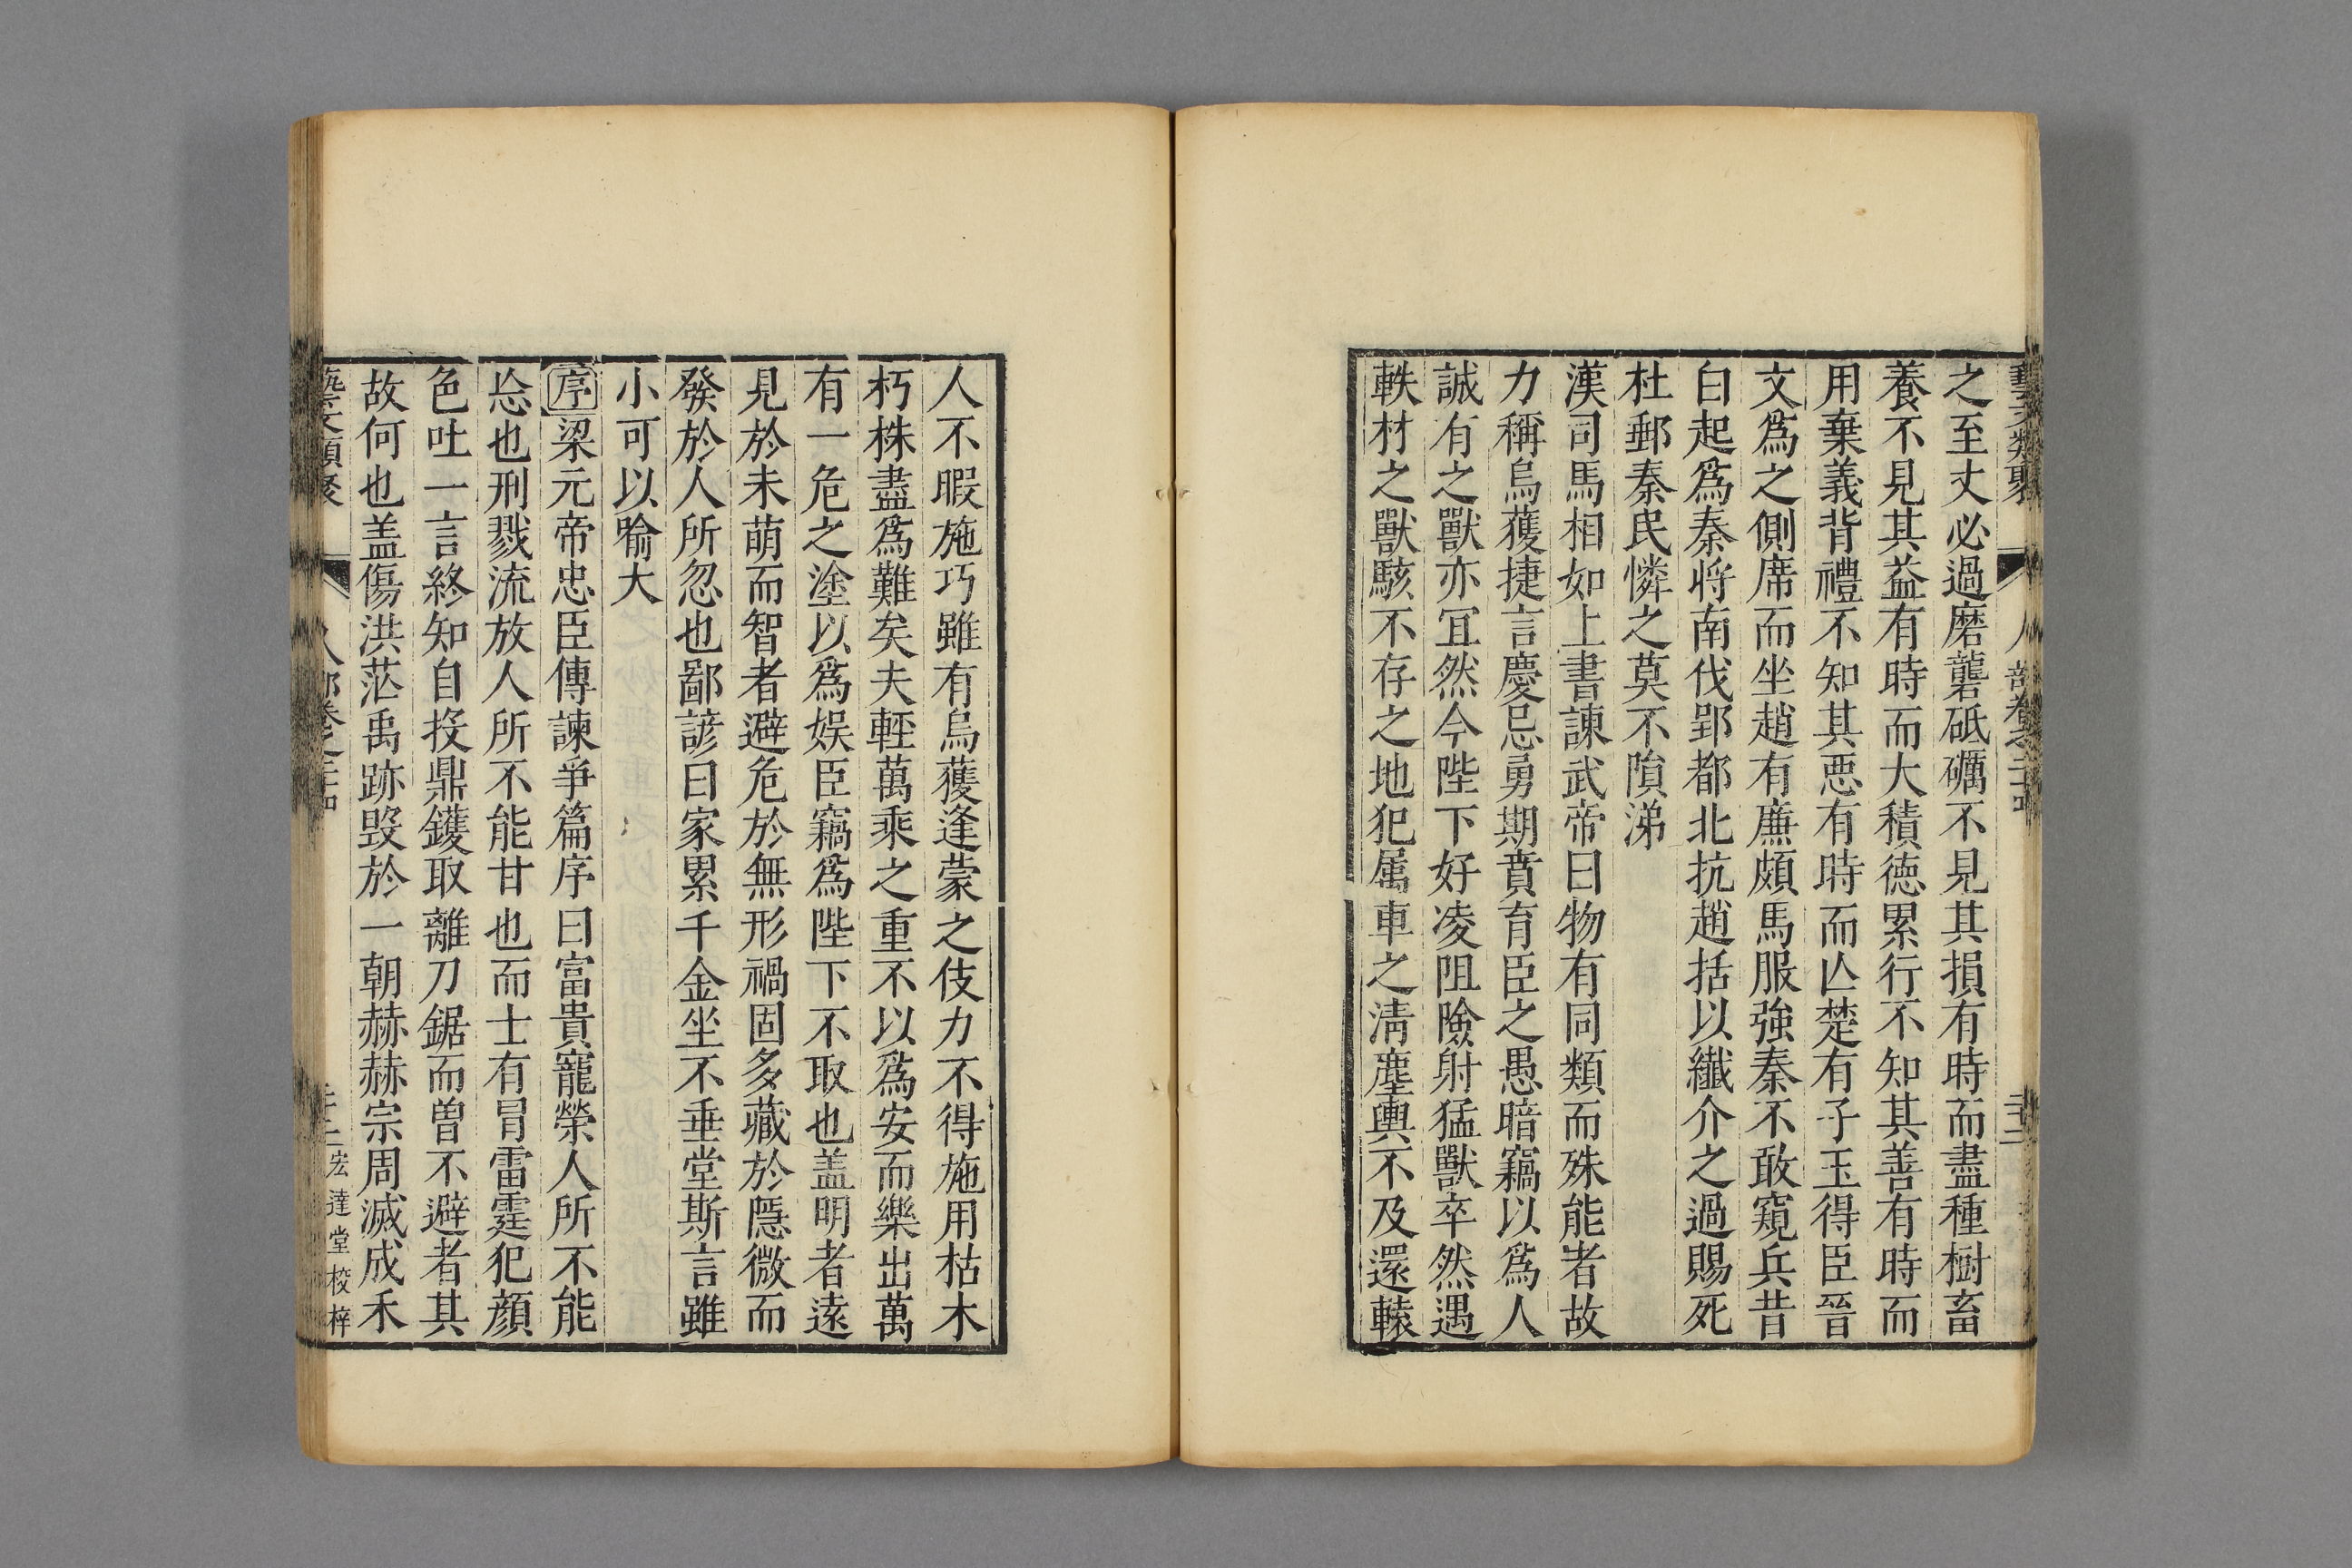 之至丈必過磨礱砥礪不見其損有時而盡種樹畜
養不見其益有時而大積德累行不知其善有時而
用棄義背禮不知其惡有時而亾楚有子玉得臣晉
文爲之側席而坐趙有廉頗馬服強秦不敢窺兵昔
白起爲秦將南伐郢都北抗趙括以纖介之過賜死
杜郵秦民憐之莫不隕涕
漢司馬相如上書諫武帝曰物有同類而殊能者故
力稱烏獲捷言慶忌勇期賁育臣之愚暗竊以爲人
誠有之獸亦冝然今陛下好凌阻險射猛獸卒然遇
軼材之獸駭不存之地犯属車之淸塵輿不及還轅
人不暇施巧雖有烏獲逢蒙之伎力不得施用枯木
朽株盡爲難矣夫輕萬乘之重不以爲安而樂出萬
有一危之塗以爲娱臣竊爲陛下不取也盖明者遠
見於未萌而智者避危於無形禍固多藏於隱微而
發於人所忽也鄙諺曰家累千金坐不垂堂斯言雖
小可以喻大
序梁元帝忠臣傳諫爭篇序曰富貴寵榮人所不能
忘也刑戮流放人所不能甘也而士有冒雷霆犯顔
色吐一言終知自投鼎鑊取離刀鋸而曽不避者其
故何也盖傷洪茫禹跡毀於一朝赫赫宗周滅成禾
宏達堂校梓